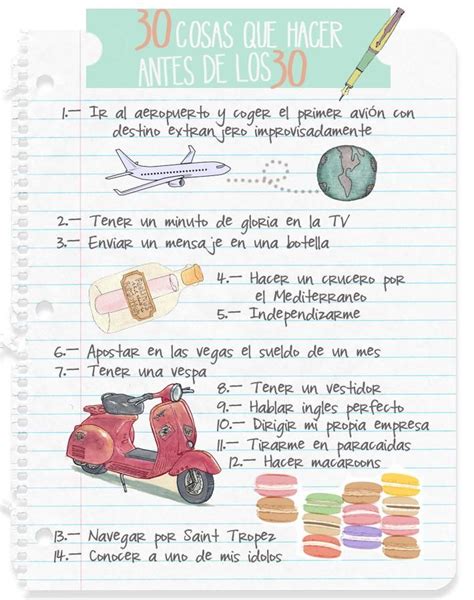 30 COSAS QUE HACER
ANTES DE LOS 30
1.- Ir al aeropuerto y coger el primer avión con
destino extranjero improvisadamente
2.- Tener un minuto de gloria en la TV
3.- Enviar un mensaje en una botella
4.- Hacer un crucero por
el Mediterraneo
5.- Independizarme
6.- Apostar en las vegas el sueldo de un mes
7.- Tener una vespa
8.- Tener un vestidor
9.- Hablar ingles perfecto
10.- Dirigir mi propia empresa
11.- Tirarme en paracaidas
12.- Hacer macaroons
13.- Navegar por Saint Tropez
14.- Conocer a uno de mis idolos